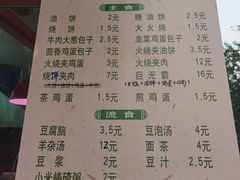 主食
油饼 2元 糖油饼 2.5元
烧饼 2元 大火烧 1.5元
牛肉大葱包子 2元 韭菜鸡蛋包子 2元
茴香鸡蛋包子 2元 火烧夹油饼 3.5元
火烧夹鸡蛋 3元 火烧夹肉 7元
烧饼夹肉 7元 巨无霸 16元
茶鸡蛋 2元 煎鸡蛋 2元
流食
豆腐脑 3.5元 豆泡汤 4元
羊杂汤 12元 面茶 4元
豆浆 2元 豆汁 2.5元
小米